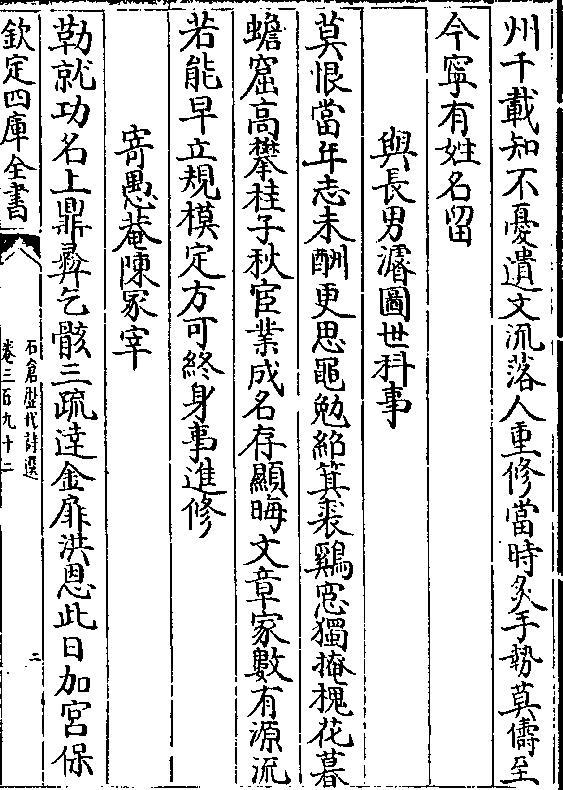 州千載知不憂遺文流落人重修當時炙手勢莫儔至
今寧有姓名留
與長男濬圖世科事
莫恨當年志未酬更思黽勉紹箕裘鷄窓獨掩槐花暮
蟾窟高攀桂子秋宦業成名存顯晦文章家數有源流
若能早立規模定方可終身事進修
寄愚菴陳冢宰
勒就功名上鼎彝乞骸三疏達金扉洪恩此日加宮保
欽定四庫全書
石倉歷代詩選
卷三百九十二
二